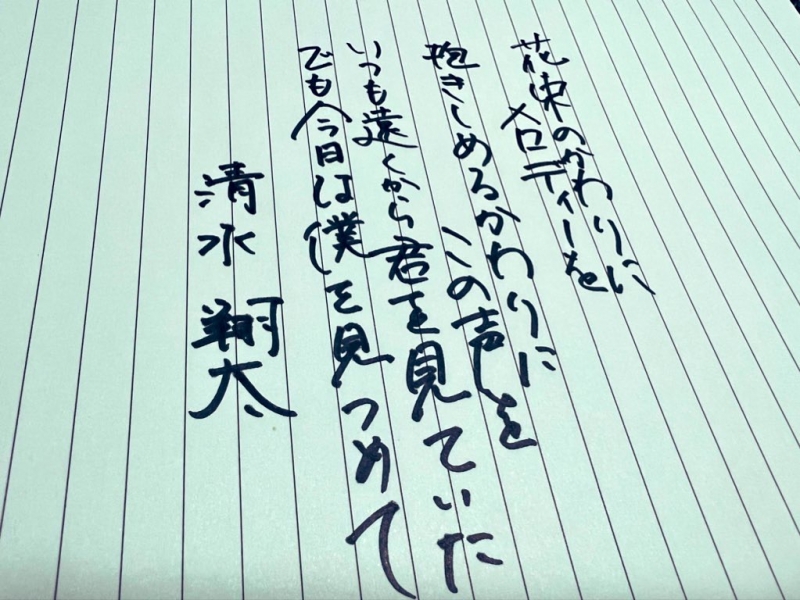 花束のかわりに
メロディーを
抱きしめるかわりに
この声を
いつも遠くから君を見ていた
でも今日は僕を見つめて
清水翔太